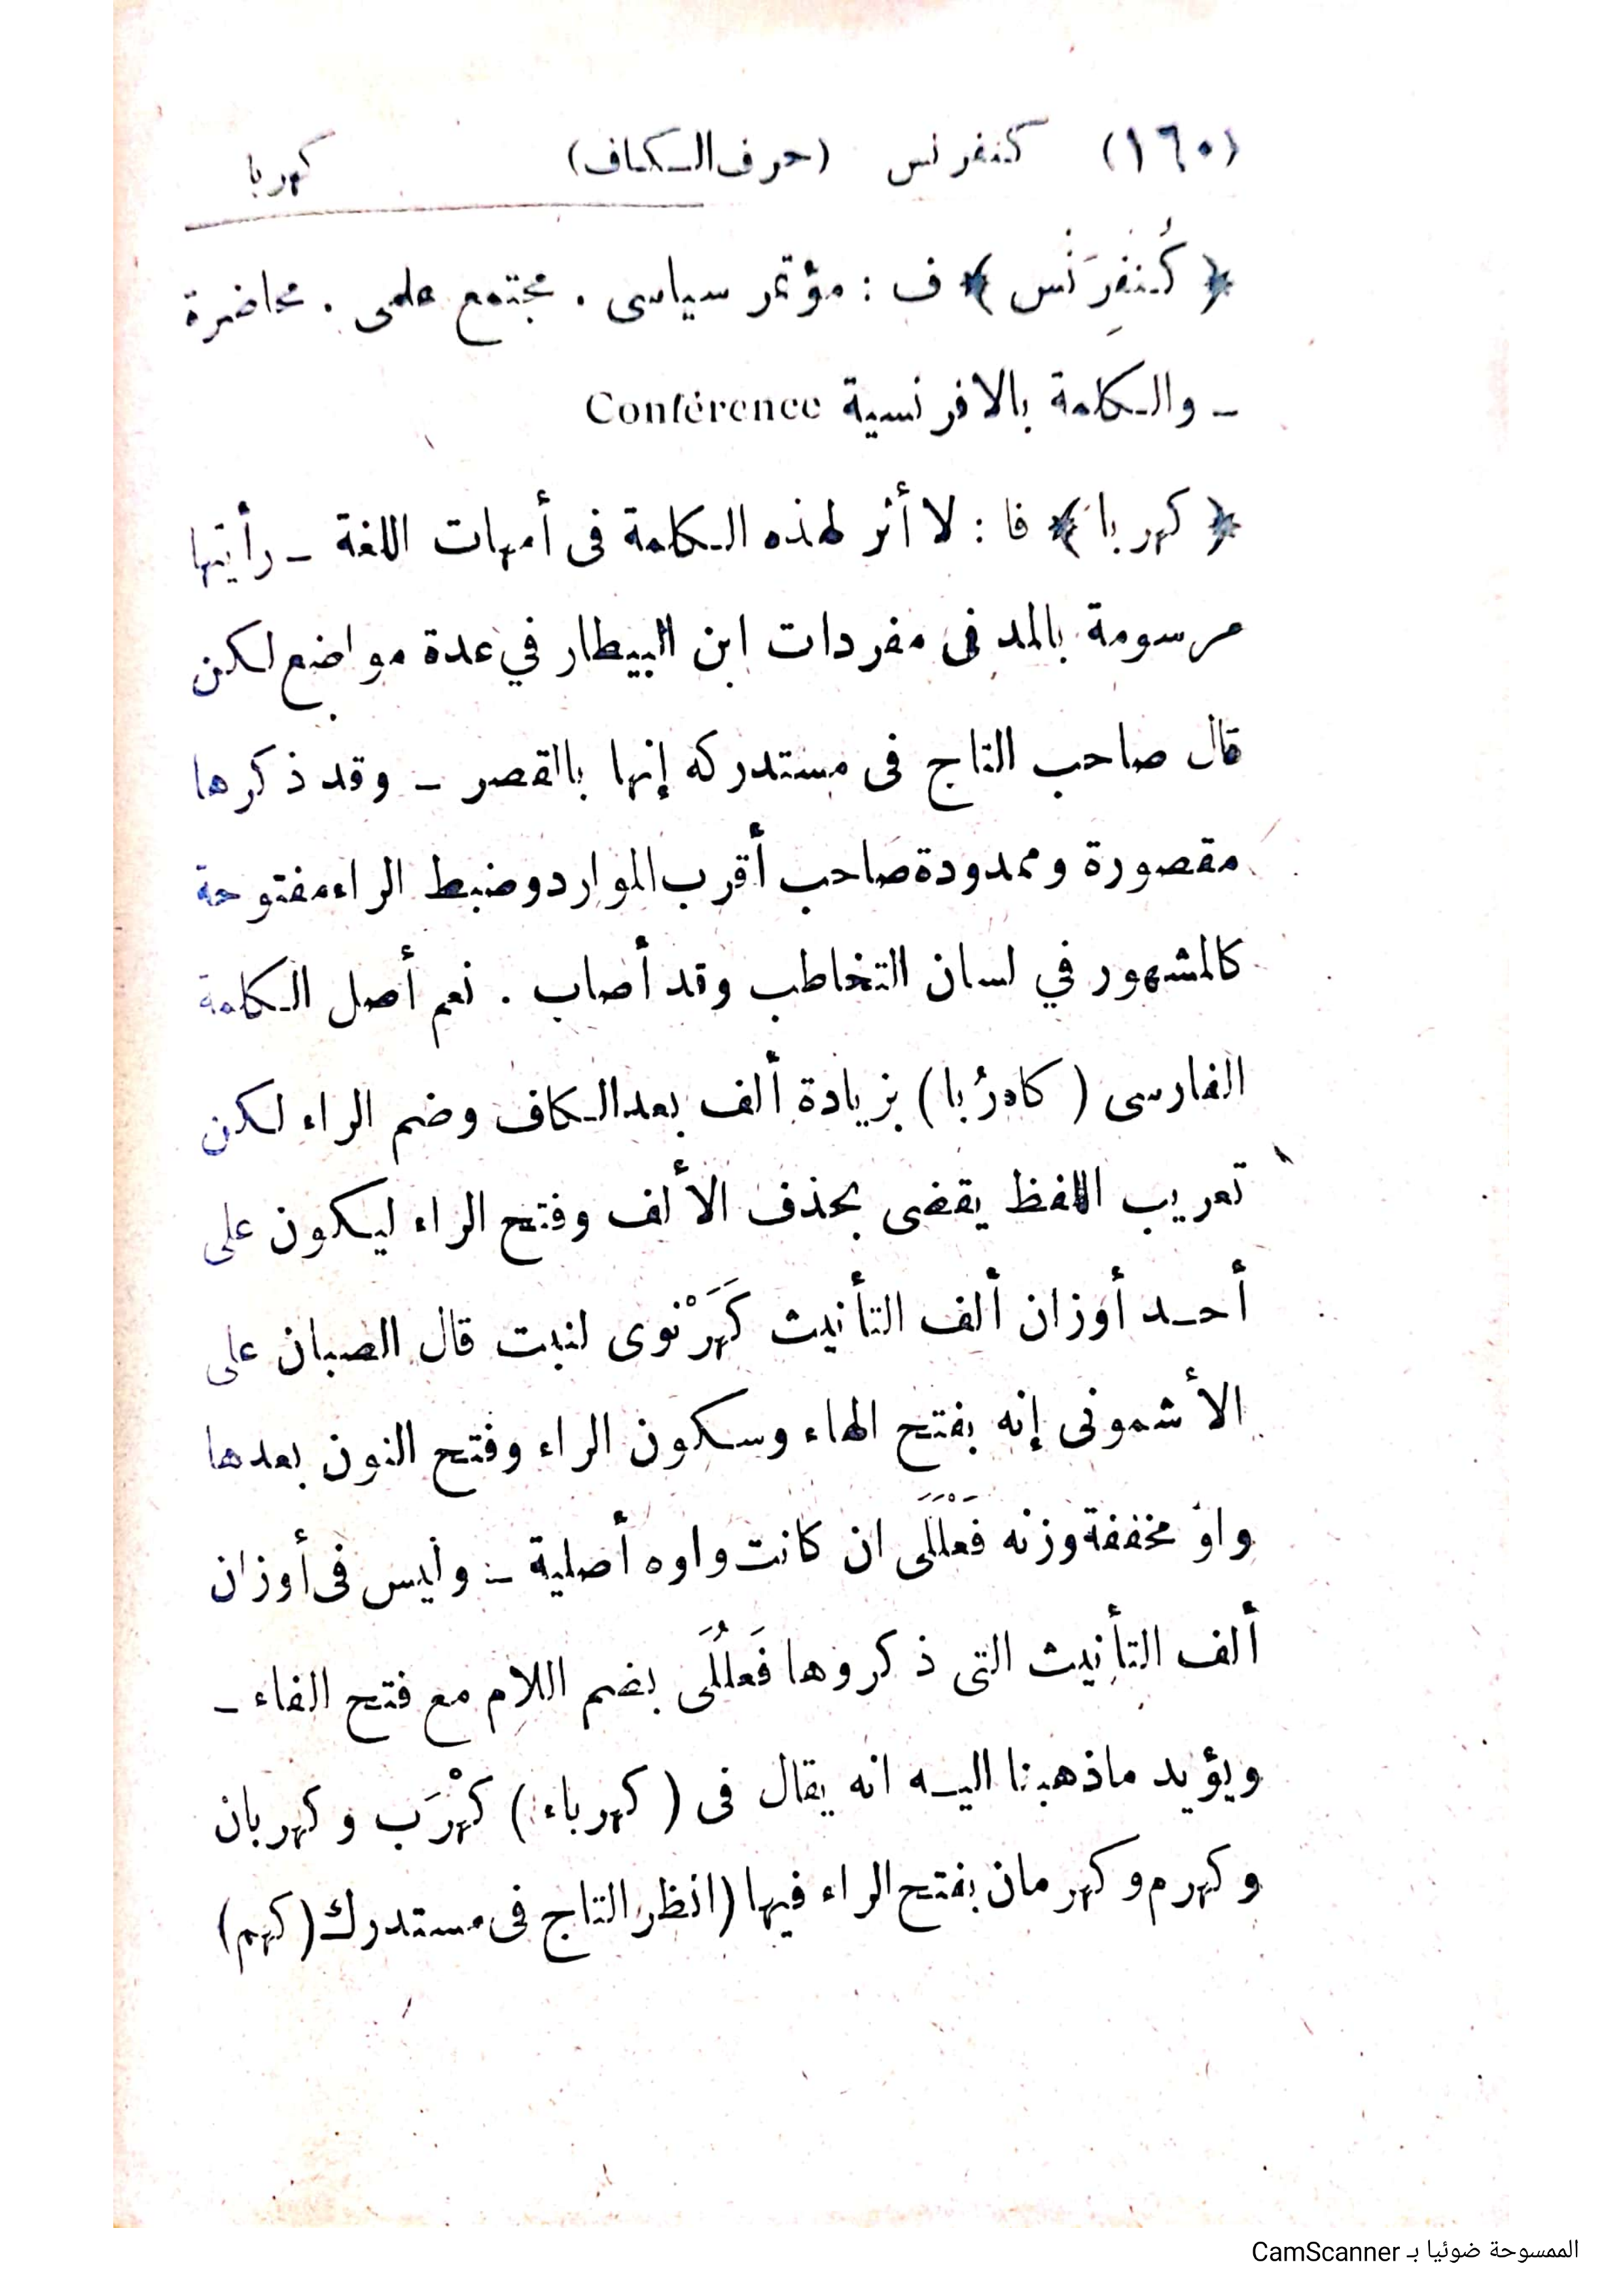 (١٦٠) كنفرنس (حرف الكاف) كهربا
﴿ كُنفِرَنْس ﴾ ف : مؤتمر سياسى . مجتمع علمى . محاضرة
ـ والكلمة بالافرنسية Conférence
﴿ كهربا ﴾ فا : لا أثر لهذه الكلمة فى أمهات اللغة ـ رأيتها
مرسومة بالمد فى مفردات ابن البيطار في عدة مواضع لكن
قال صاحب التاج فى مستدركه إنها بالقصر ـ وقد ذكرها
مقصورة وممدودة صاحب أقرب الموارد وضبط الراء مفتوحة
كالمشهور في لسان التخاطب وقد أصاب . نعم أصل الكلمة
الفارسى ( كاهرُبا ) بزيادة ألف بعد الكاف وضم الراء لكن
تعريب اللفظ يقضى بحذف الألف وفتح الراء ليكون على
أحد أوزان ألف التأنيث كَهَرْنوى لنبت قال الصبان على
الأشمونى إنه بفتح الهاء وسكون الراء وفتح النون بعدها
واو مخففة وزنه فَعْلَلَى ان كانت واوه أصلية ـ وليس فى أوزان
ألف التأنيث التى ذكروها فَعلُلَى بضم اللام مع فتح الفاء ـ
ويؤيد ماذهبنا اليه انه يقال فى ( كهرباء ) كَهْرَب وكهربان
وكهرم وكهرمان بفتح الراء فيها (انظر التاج فى مستدرك (كهم)
الممسوحة ضوئيا بـ CamScanner